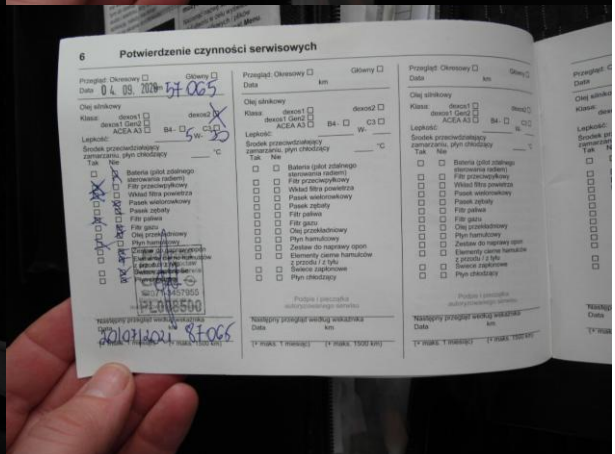 6 Potwierdzenie czynności serwisowych
Przegląd: Okresowy Główny
Data 04. 09. 2020 km 57 065
Olej silnikowy
Klasa: dexos1 dexos2
dexos1 Gen2
ACEA A3 B4- C3
Lepkość: 5 W- 30
Środek przeciwdziałający
zamarzaniu, płyn chłodzący °C
Tak Nie
Bateria (pilot zdalnego
sterowania radiem)
Filtr przeciwpyłkowy
Wkład filtra powietrza
Pasek wielorowkowy
Pasek zębaty
Filtr paliwa
Filtr gazu
Olej przekładniowy
Płyn hamulcowy
Zestaw do naprawy opon
Elementy cierne hamulców
z przodu / z tyłu
Świece zapłonowe
Następny przegląd według wskaźnika
Data km
87065
(+ maks. 1 miesiąc) (+ maks. 1500 km)
Przegląd: Okresowy Główny
Data km
Olej silnikowy
Klasa: dexos1 dexos2
dexos1 Gen2
ACEA A3 B4- C3
Lepkość: W-
Środek przeciwdziałający
zamarzaniu, płyn chłodzący °C
Tak Nie
Bateria (pilot zdalnego
sterowania radiem)
Filtr przeciwpyłkowy
Wkład filtra powietrza
Pasek wielorowkowy
Pasek zębaty
Filtr paliwa
Filtr gazu
Olej przekładniowy
Płyn hamulcowy
Zestaw do naprawy opon
Elementy cierne hamulców
z przodu / z tyłu
Świece zapłonowe
Płyn chłodzący
Podpis i pieczątka
autoryzowanego serwisu
Następny przegląd według wskaźnika
Data km
(+ maks. 1 miesiąc) (+ maks. 1500 km)
Przegląd: Okresowy Główny
Data km
Olej silnikowy
Klasa: dexos1 dexos2
dexos1 Gen2
ACEA A3 B4- C3
Lepkość: W-
Środek przeciwdziałający
zamarzaniu, płyn chłodzący °C
Tak Nie
Bateria (pilot zdalnego
sterowania radiem)
Filtr przeciwpyłkowy
Wkład filtra powietrza
Pasek wielorowkowy
Pasek zębaty
Filtr paliwa
Filtr gazu
Olej przekładniowy
Płyn hamulcowy
Zestaw do naprawy opon
Elementy cierne hamulców
z przodu / z tyłu
Świece zapłonowe
Płyn chłodzący
Podpis i pieczątka
autoryzowanego serwisu
Następny przegląd według wskaźnika
Data km
(+ maks. 1 miesiąc) (+ maks. 1500 km)